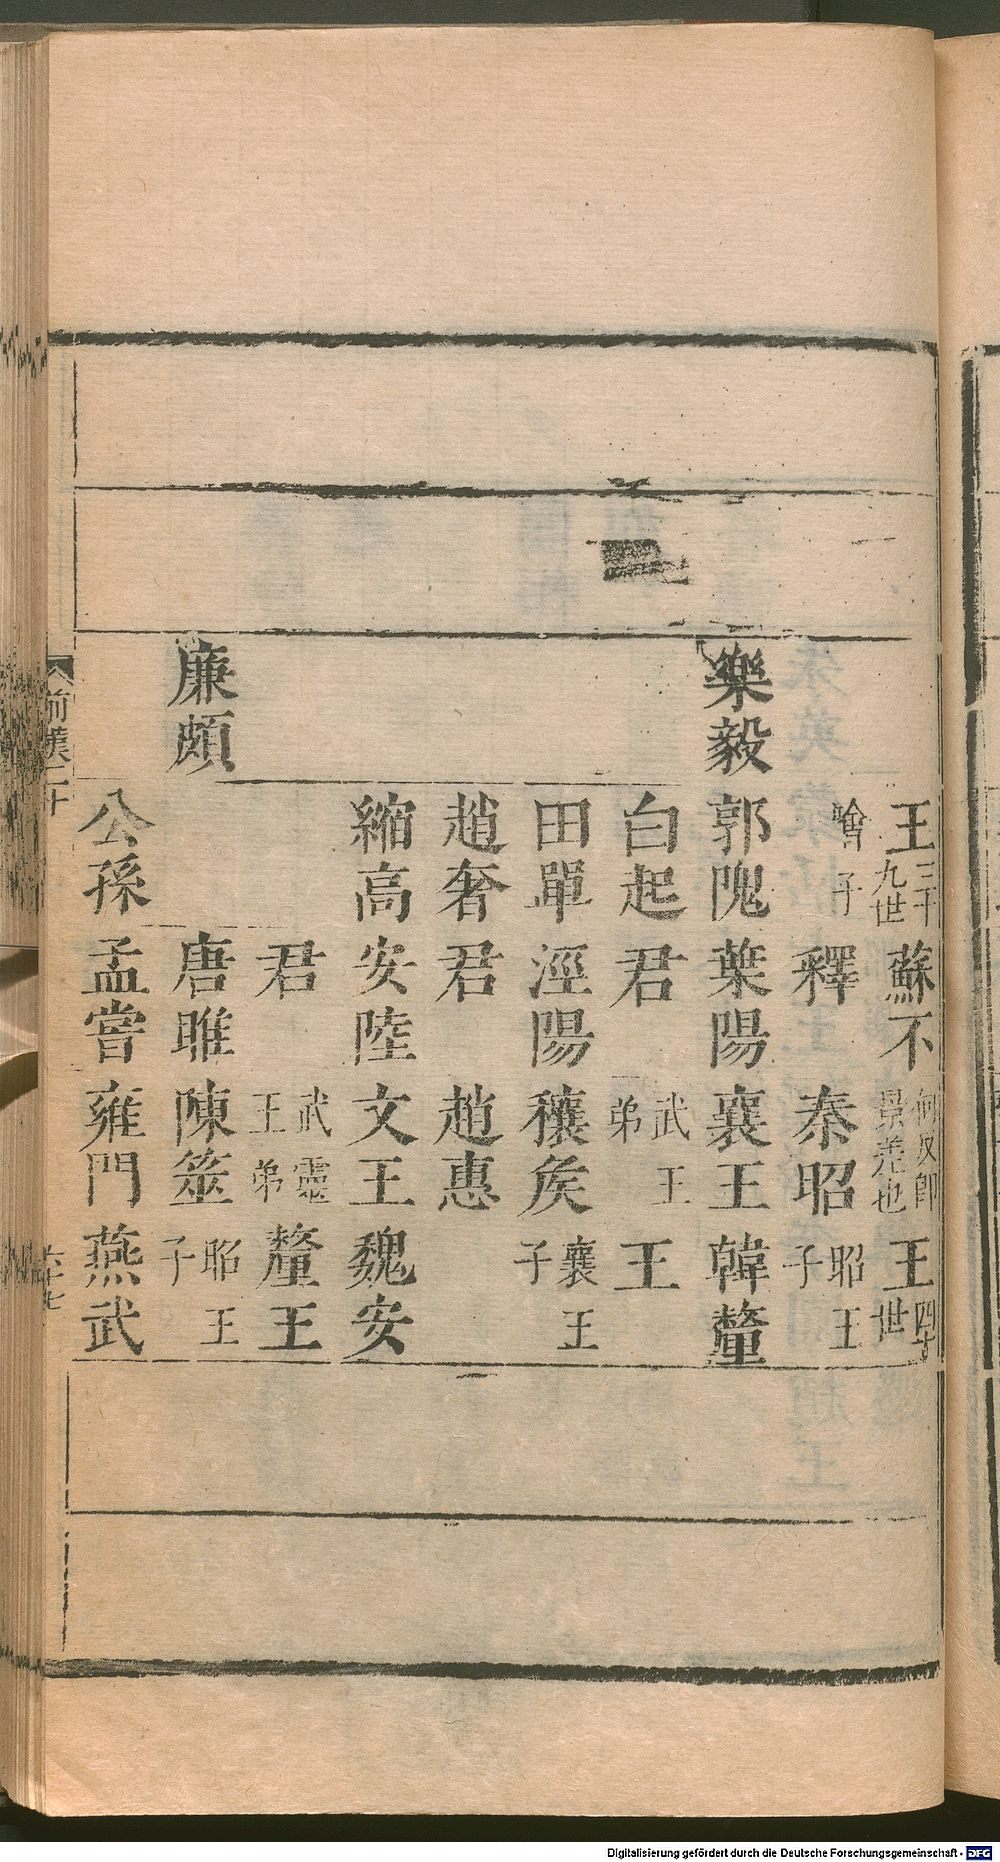 王三十九世 蘇不 何反即景差也 王四十世
噲子 釋 秦昭 昭王子
樂毅 郭隗 葉陽 襄王 韓釐
白起 君 武王弟 王
田單 涇陽 穰矦 襄王子
趙奢 君 趙惠
縮高 安陸 文王 魏安
君 武靈王弟 釐王
廉頗 唐雎 陳筮 昭王子
公孫 孟嘗 雍門 燕武
前漢二十
六十七
Digitalisierung gefördert durch die Deutsche Forschungsgemeinschaft - DFG